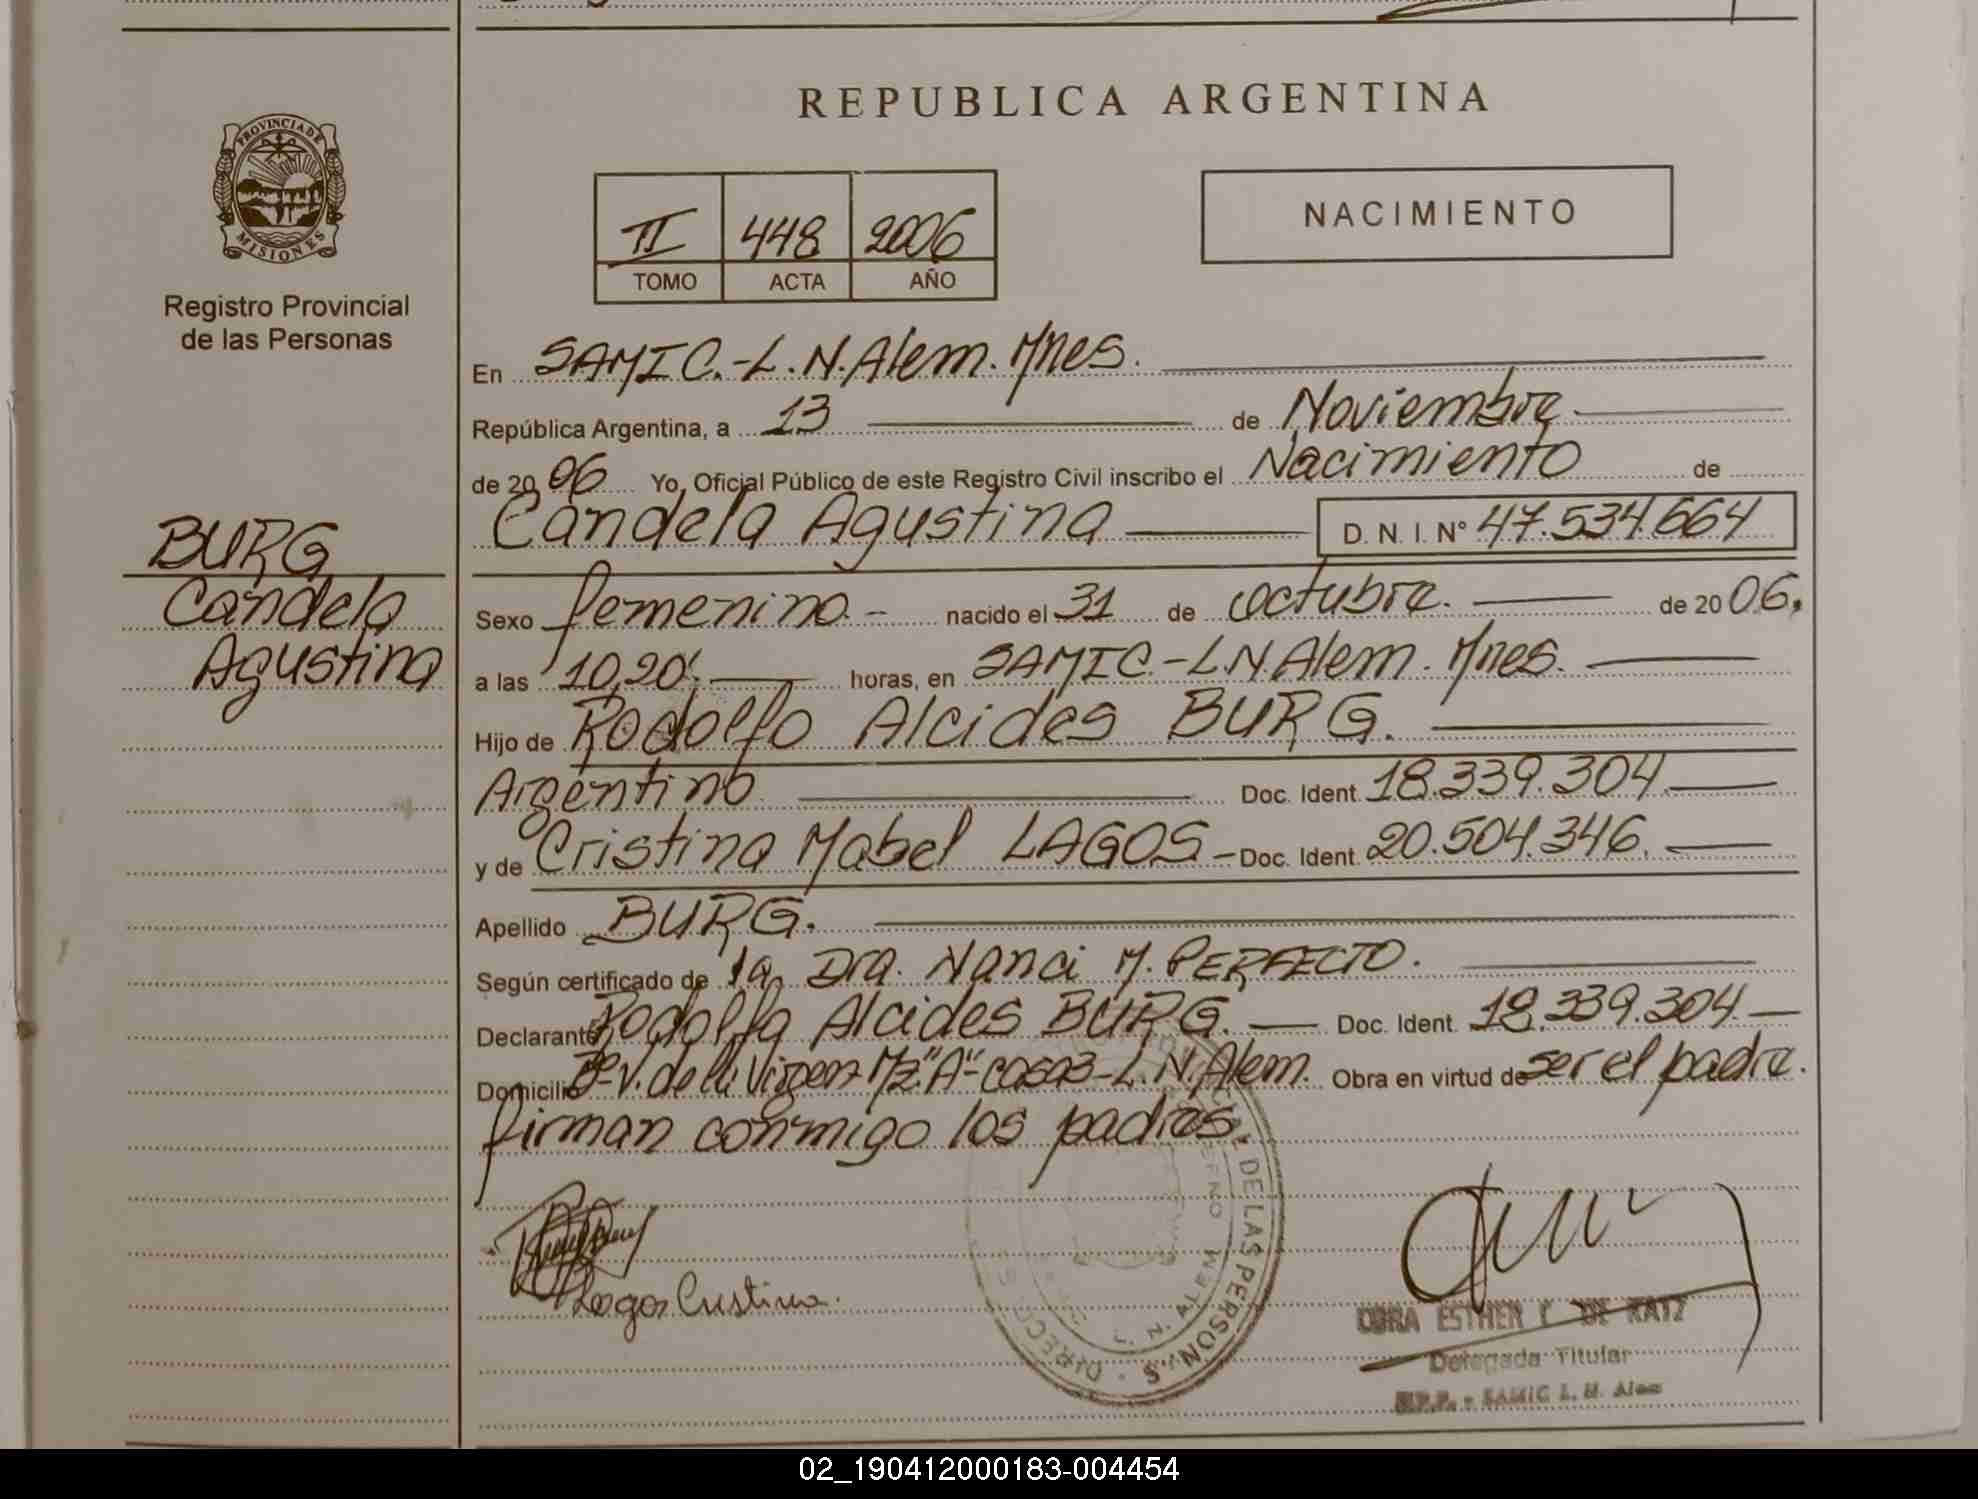 REPUBLICA ARGENTINA
PROVINCIA DE
MISIONES
Registro Provincial
de las Personas
II 448 2006
TOMO ACTA AÑO
NACIMIENTO
En SAMIC.-L.N.Alem.Mnes.
República Argentina, a 13 de Noviembre
de 2006 Yo, Oficial Público de este Registro Civil inscribo el Nacimiento de
Candela Agustina D. N. I. Nº 47.534.664
BURG
Candela
Agustina
Sexo femenino.- nacido el 31 de octubre. de 2006.
a las 10,20'. horas, en SAMIC.-L.N.Alem. Mnes.
Hijo de Rodolfo Alcides BURG.
Argentino Doc. Ident. 18.339.304
y de Cristina Mabel LAGOS - Doc. Ident. 20.504.346.
Apellido BURG.
Según certificado de la Dra. Nanci M. PERFECTO.
Declarante Rodolfo Alcides BURG. Doc. Ident. 18.339.304
Domicilio Bº-V. de la Virgen Mz."A"- casa3-L.N.Alem. Obra en virtud de ser el padre.
firman conmigo los padres.
Lagos Cristina.
DE LAS PERSONAS
L. N. ALEM
ESTHER DE KATZ
Delegada Titular
R.P.P. - SAMIC L. N. Alem
02_190412000183-004454